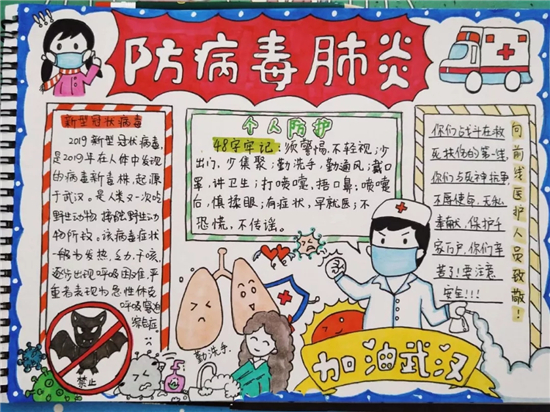 防病毒肺炎
新型冠状病毒
2019新型冠状病毒,
是2019年在人体中发现
的病毒新毒株,起源
于武汉。是人类又一次吃
野生动物、接触野生动
物所致。该病毒症状
一般为发热、乏力、干咳、
逐渐出现呼吸困难,严
重者表现为急性休克
呼吸窘迫
综合症。
禁止
个人防护
48字牢记:须警惕,不轻视;少
出门,少集聚;勤洗手,勤通风;戴口
罩,讲卫生;打喷嚏,捂口鼻;喷嚏
后,慎揉眼;有症状,早就医;不
恐慌,不传谣。
勤洗手
你们战斗在救
死扶伤的第一线,
你们与死神抗争
不辱使命、无私
奉献,保护千
家万户,你们辛
苦了!要注意
安全!!!
向前线医护人员致敬!
加油武汉